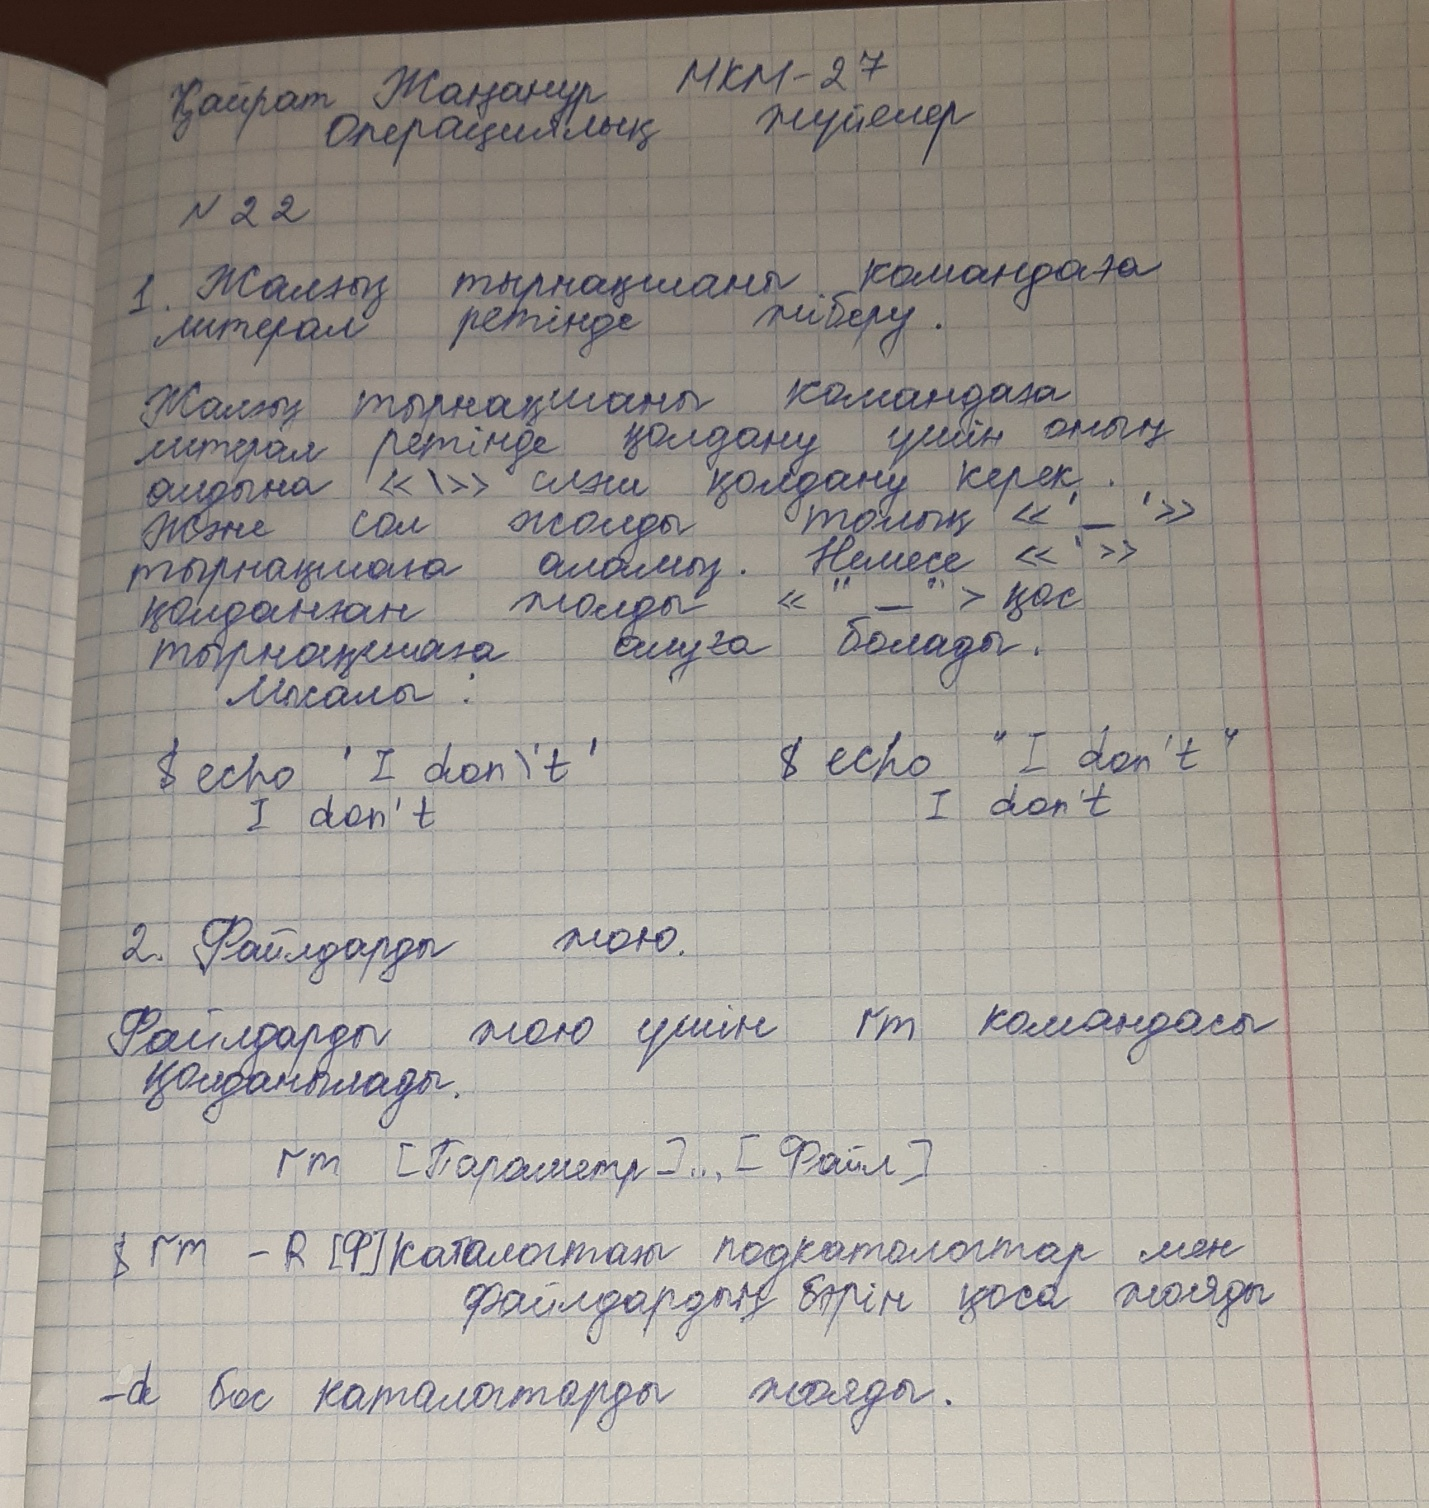 Қайрат Жаңанұр МКМ-27
Операциялық жүйелер
N 22
1. Жалғыз тырнақшаны командаға
литерал ретінде жіберу.
Жалғыз тырнақшаны командаға
литерал ретінде қолдану үшін оның
алдына «\» слэш қолдану керек.
Және сол жолды толық «'_'»
тырнақшаға аламыз. Немесе «'»
қолданған жолды «"_"> қос
тырнақшаға алуға болады.
Мысалы:
$ echo 'I don\'t' $ echo "I don't"
I don't I don't
2. Файлдарды жою.
Файлдарды жою үшін rm командасы
қолданылады.
rm [Параметр]... [Файл]
$ rm -R [Ф] каталогтағы подкаталогтар мен
файлдардың бәрін қоса жояды
-d бос каталогтарды жояды.